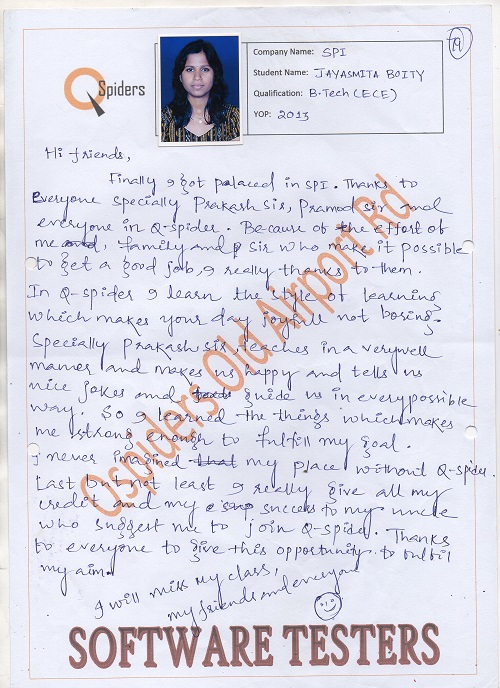 19
Q Spiders
Company Name: SPI
Student Name: JAYASMITA BOITY
Qualification: B.Tech (ECE)
YOP: 2013
Hi friends,
Finally I got palaced in SPI. Thanks to
Everyone specially Prakash sir, Pramod sir and
everyone in Q-spider. Because of the effort of
me and, family and Sir who make it possible
to get a good job, I really thanks to them.
In Q-spider I learn the style of learning
which makes your day joyfull not boring.
Specially Prakash sir, teaches in a verywell
manner and makes us happy and tells us
nice jokes and guide us in everypossible
way. So I learned the things which makes
me strong enough to fulfill my goal.
I never imagined that my place without Q-spider.
Last but not least I really give all my
credit and my success to my uncle
who suggest me to join Q-spider. Thanks
to everyone to give this opportunity to fulfil
my aim.
I will miss my class,
my friends and everyone
Qspiders Old Airport Rd
SOFTWARE TESTERS